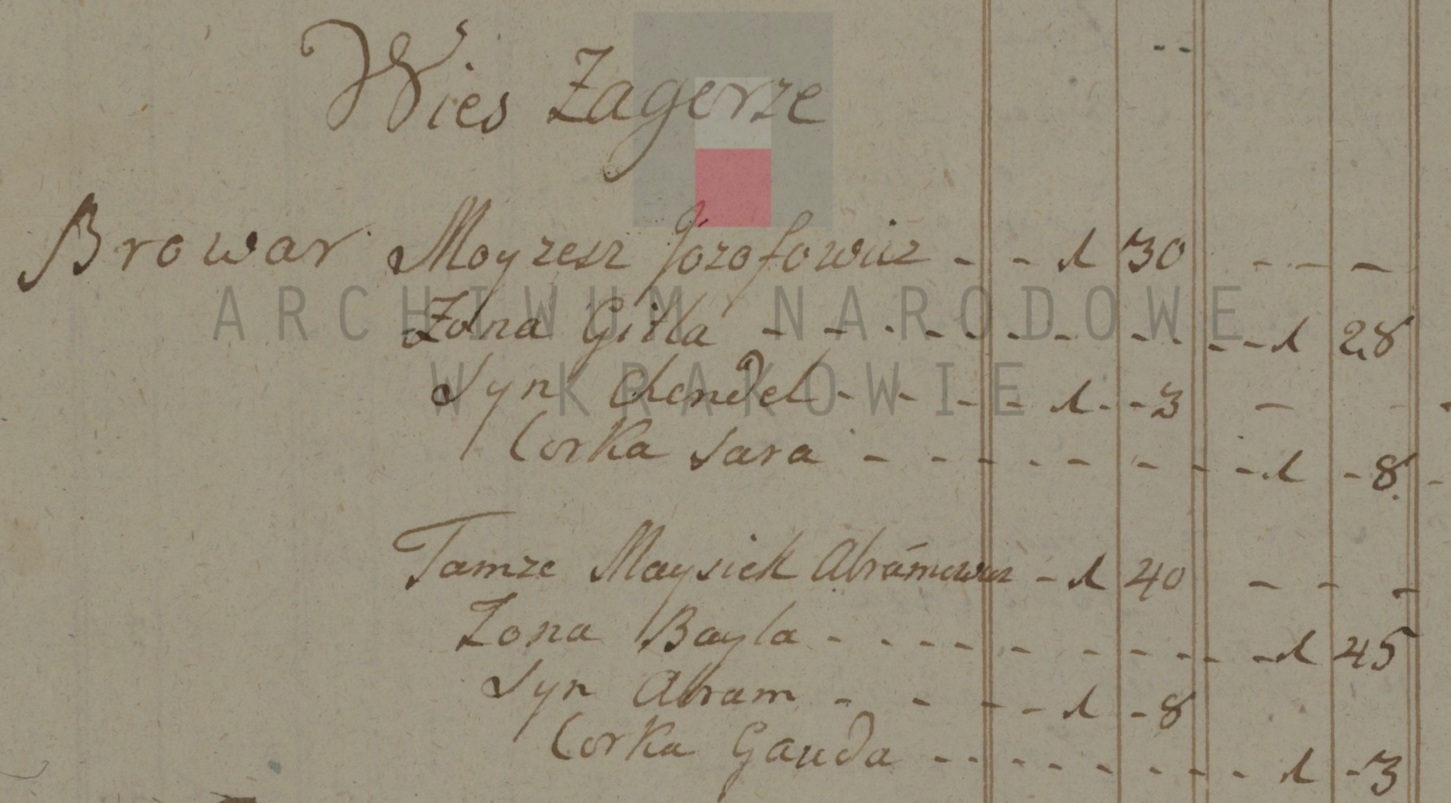 Wies Zagorze
Browar Moyzesz Jozofowicz - - 1 30 - - -
Zona Gitla - - - - - - - - - - 1 28
Syn Chendel - - - - 1 - - 3 - -
Corka Sara - - - - - - - - - 1 - 8
Tamze Maysiek Abramowicz - 1 40 - - -
Zona Bayla - - - - - - - - - - 1 45
Syn Abram - - - - 1 - 8
Corka Gauda - - - - - - - - - 1 - 3
ARCHIWUM NARODOWE
W KRAKOWIE